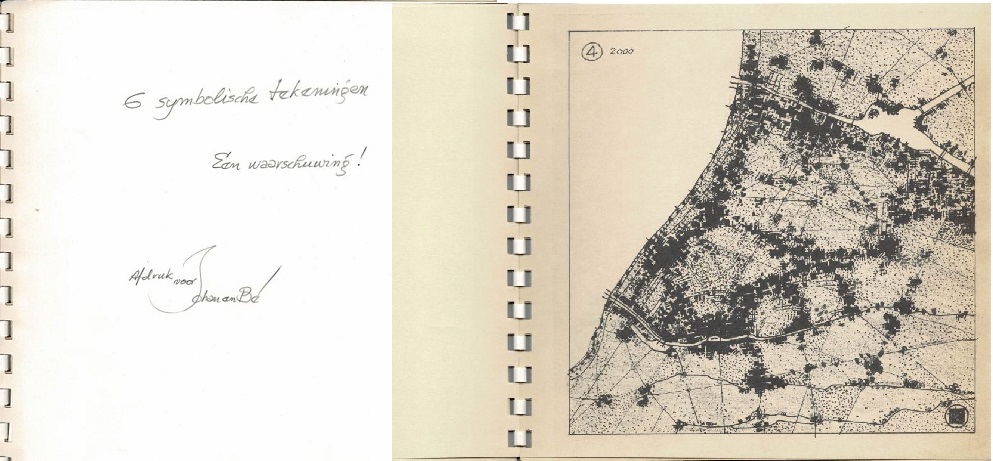 6 symbolische tekeningen
Een waarschuwing!
Afdruk voor
Johan en Bé
④ 2000